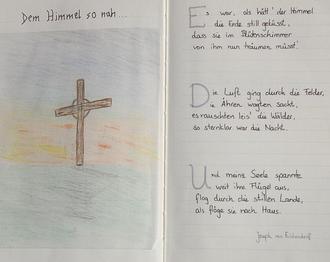 Dem Himmel so nah...
Es war, als hätt' der Himmel
die Erde still geküsst,
dass sie im Blütenschimmer
von ihm nun träumen müsst'
Die Luft ging durch die Felder,
die Ähren wogten sacht,
es rauschten leis' die Wälder,
so sternklar war die Nacht.
Und meine Seele spannte
weit ihre Flügel aus,
flog durch die stillen Lande,
als flöge sie nach Haus.
Joseph von Eichendorff